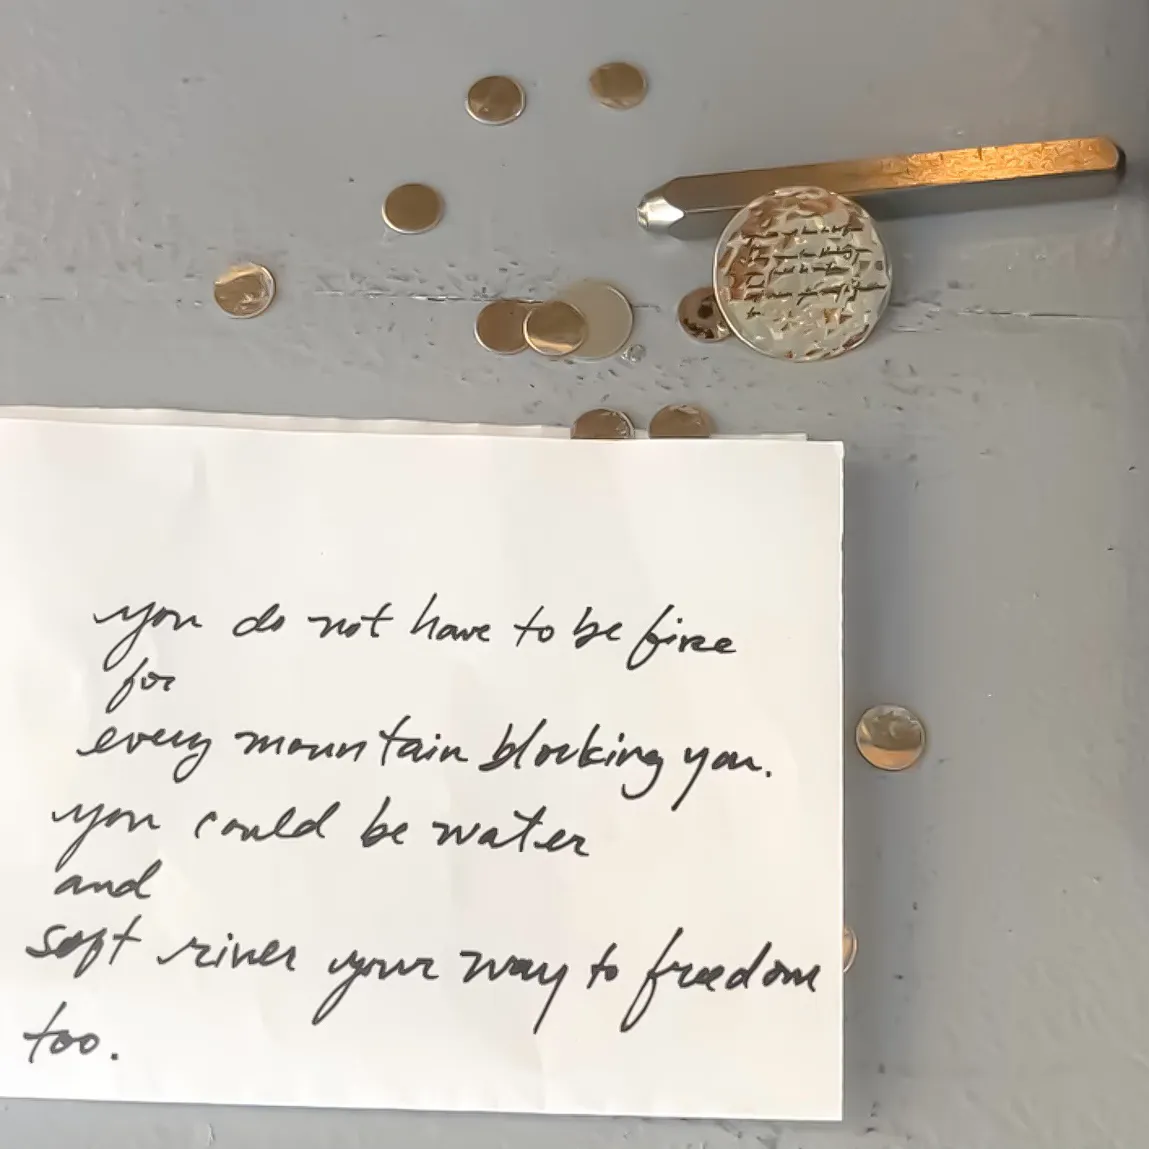 you do not have to be fire
for
every mountain blocking you.
you could be water
and
soft river your way to freedom
too.